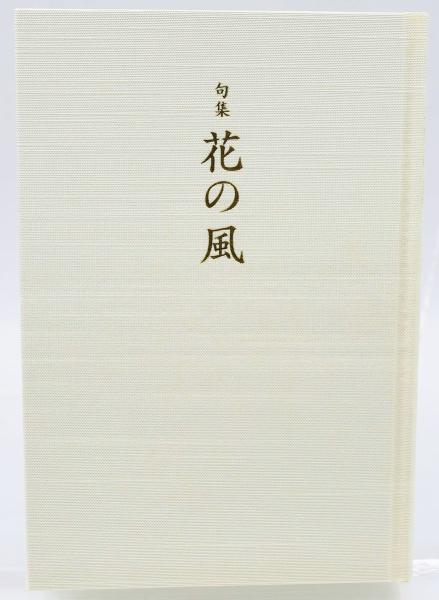 句集
花の風